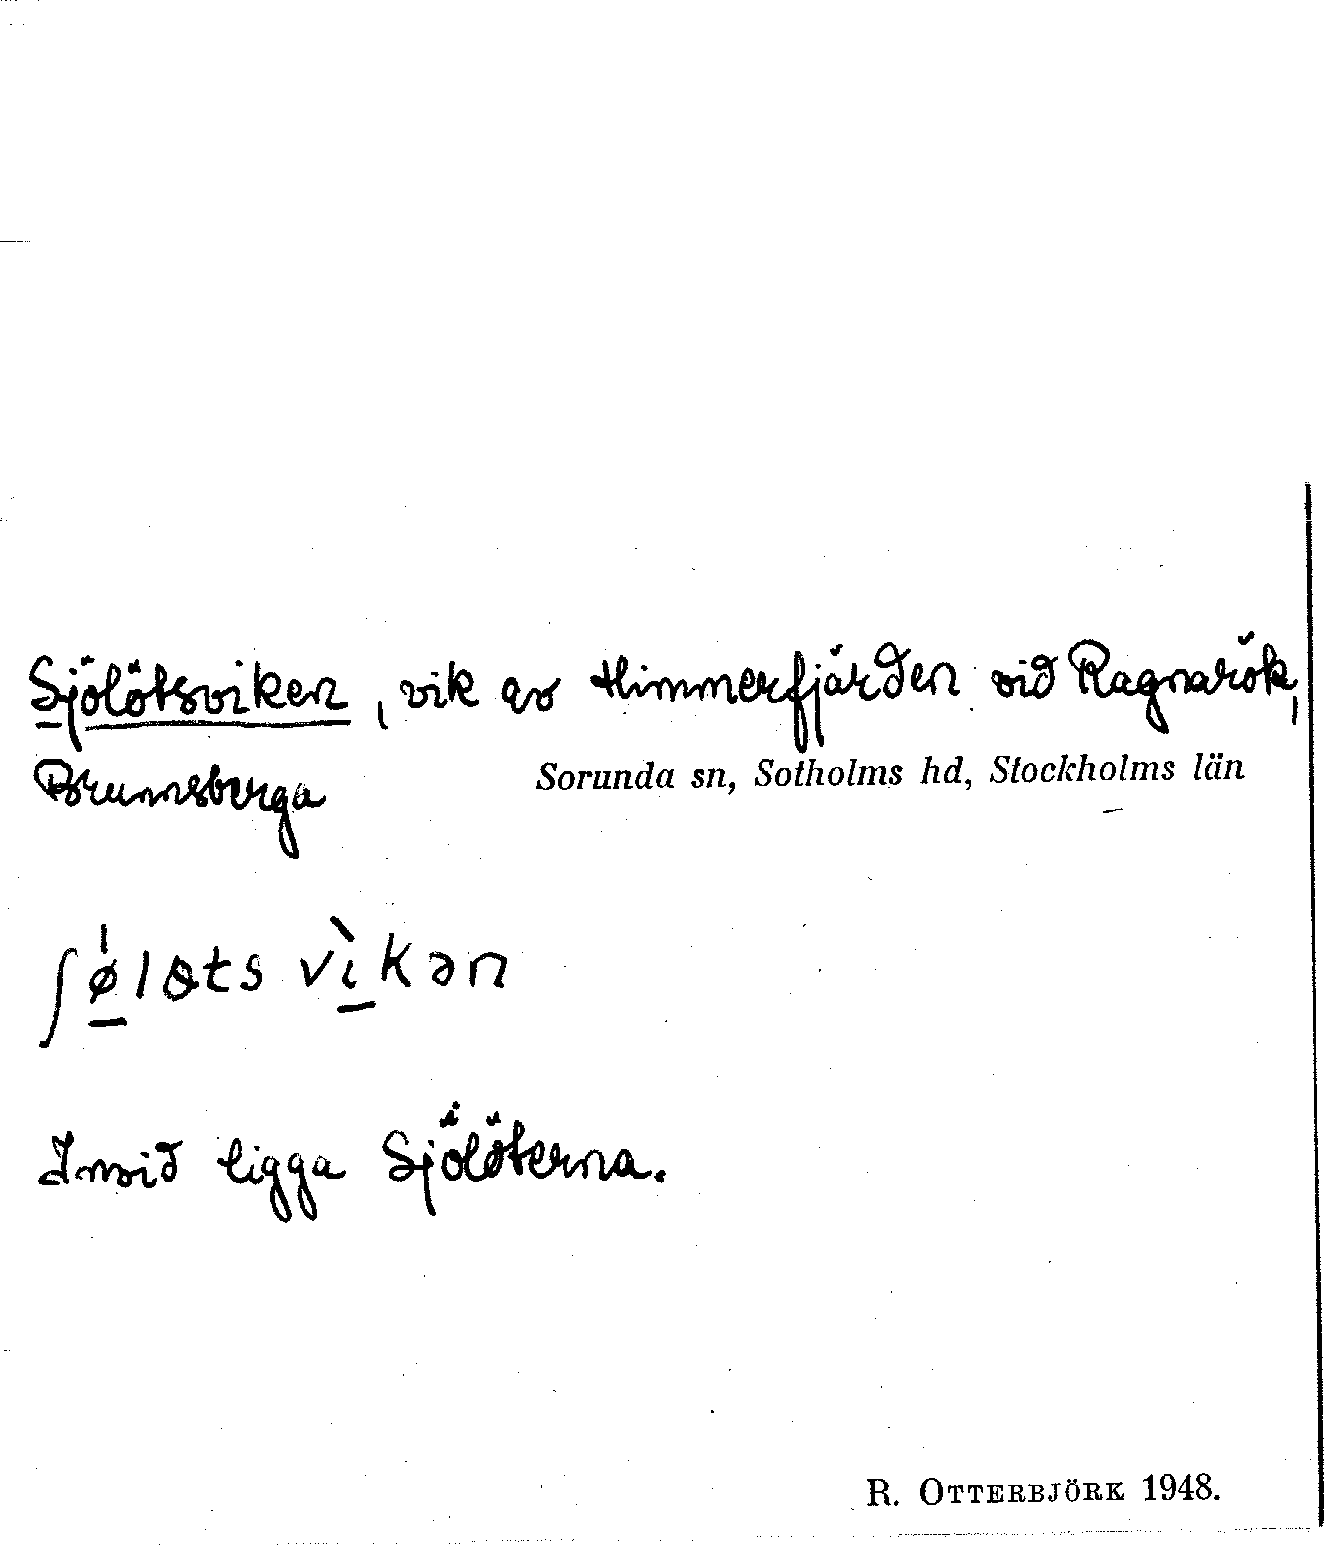 Sjölötsviken, vik av Himmerfjärden vid Ragnarök,
Brunnsberga Sorunda sn, Sotholms hd, Stockholms län
ʃǿ̠lɵts vì̠kən
Invid ligga Sjölöterna.
R. OTTERBJÖRK 1948.